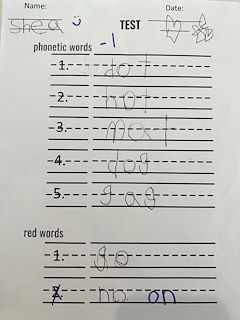 Name: Date:
shea TEST
phonetic words -1
1. dot
2. hot
3. mat
4. dog
5. gag
red words
1. go
2. no on